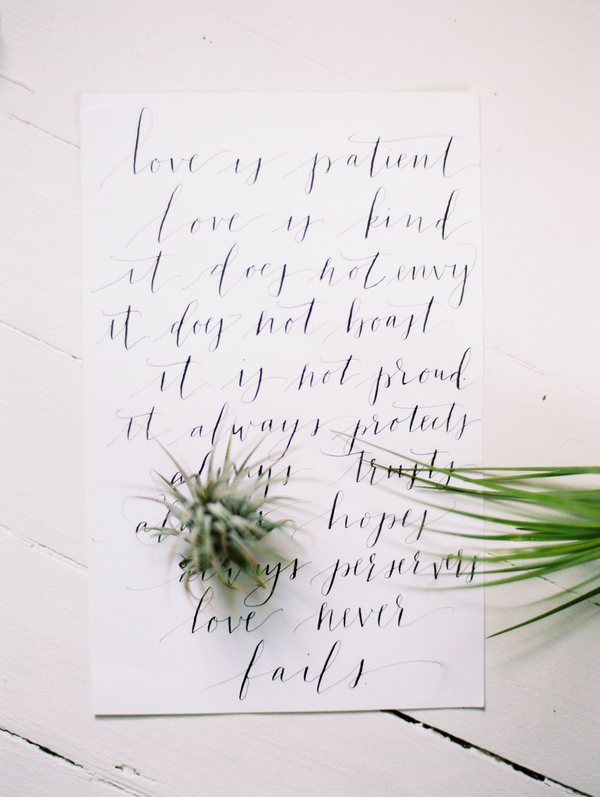 love is patient
love is kind
it does not envy
it does not boast
it is not proud.
it always protects
always trusts
always hopes
always perservers
love never
fails.